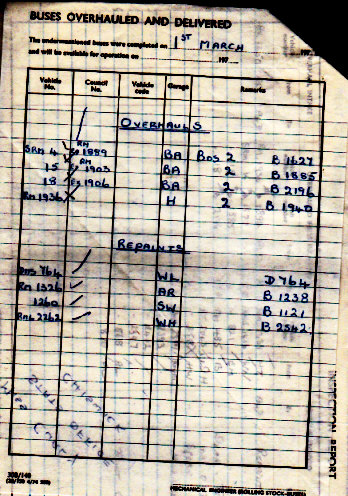 BUSES OVERHAULED AND DELIVERED
The undermentioned buses were completed on 1ST MARCH 197
and will be available for operation on 197
Vehicle No. Council No. Vehicle code Garage Remarks
OVERHAULS
SRM 4 RM 1889 BA BOS 2 B 1627
15 RM 1903 BA 2 B 1885
18 1906 BA 2 B 2196
RM 1936 H 2 B 1940
REPAINTS
DMS 764 WL D 764
RM 1326 AR B 1238
1260 SW B 1121
RML 2262 WH B 2542
CHISWICK
OFFICE
INSPECTION REPORT
MECHANICAL ENGINEER (ROLLING STOCK-BUSES)